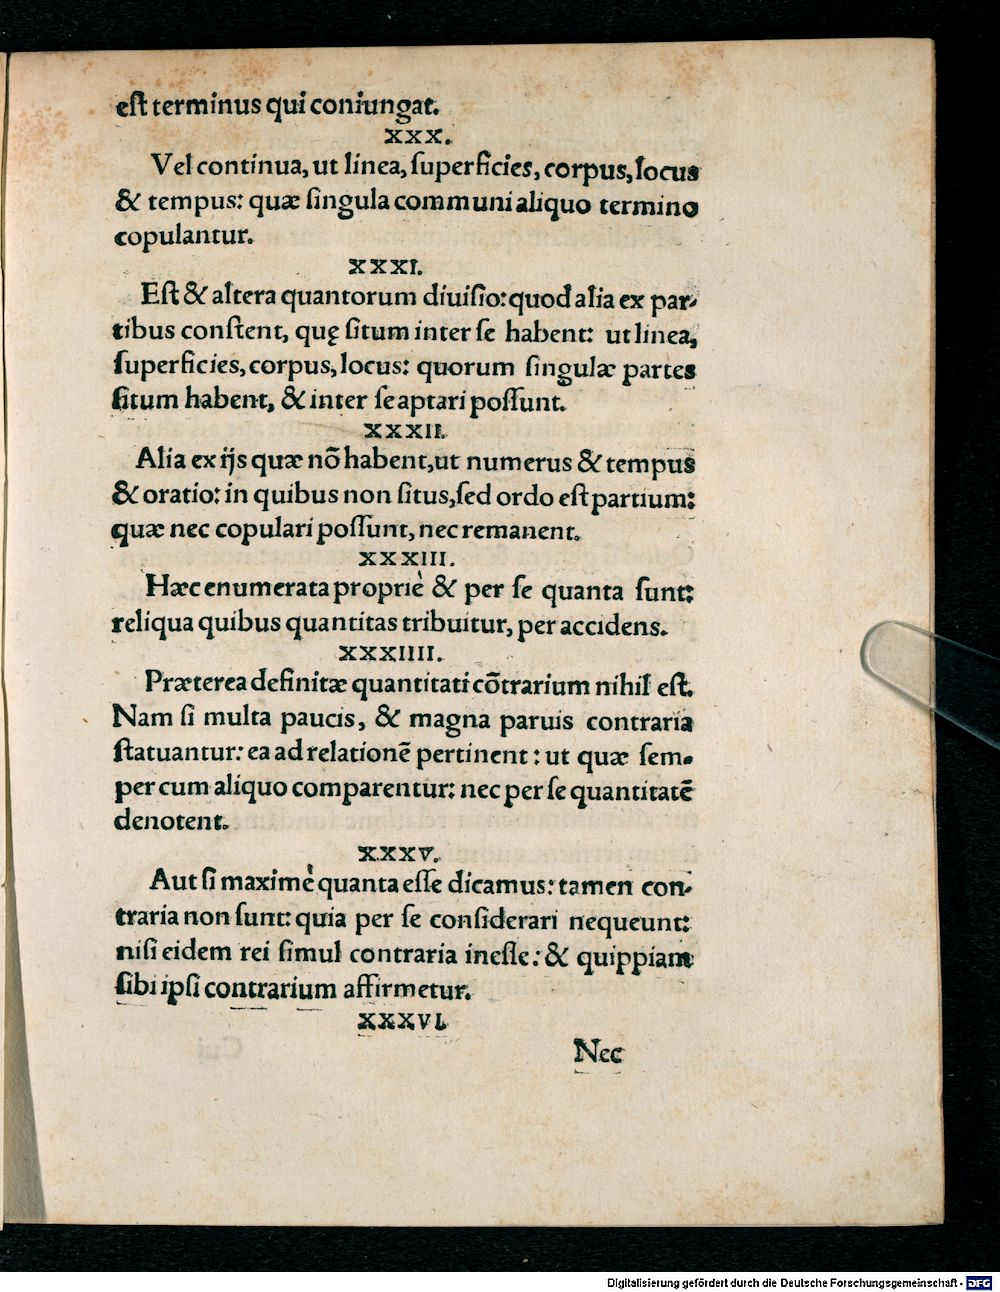 est terminus qui coniungat.
XXX.
Vel continua, ut linea, superficies, corpus, locus
& tempus: quæ singula communi aliquo termino
copulantur.
XXXI.
Est & altera quantorum diuisio: quod alia ex par-
tibus constent, quę situm inter se habent: ut linea,
superficies, corpus, locus: quorum singulæ partes
situm habent, & inter se aptari possunt.
XXXII.
Alia ex ijs quæ nõ habent, ut numerus & tempus
& oratio: in quibus non situs, sed ordo est partium:
quæ nec copulari possunt, nec remanent.
XXXIII.
Hæc enumerata propriè & per se quanta sunt:
reliqua quibus quantitas tribuitur, per accidens.
XXXIIII.
Præterea definitæ quantitati cõtrarium nihil est.
Nam si multa paucis, & magna paruis contraria
statuantur: ea ad relationẽ pertinent: ut quæ sem-
per cum aliquo comparentur: nec per se quantitatẽ
denotent.
XXXV.
Aut si maximè quanta esse dicamus: tamen con-
traria non sunt: quia per se considerari nequeunt:
nisi eidem rei simul contraria inesse: & quippiam
sibi ipsi contrarium affirmetur.
XXXVI.
Nec
Digitalisierung gefördert durch die Deutsche Forschungsgemeinschaft - DFG